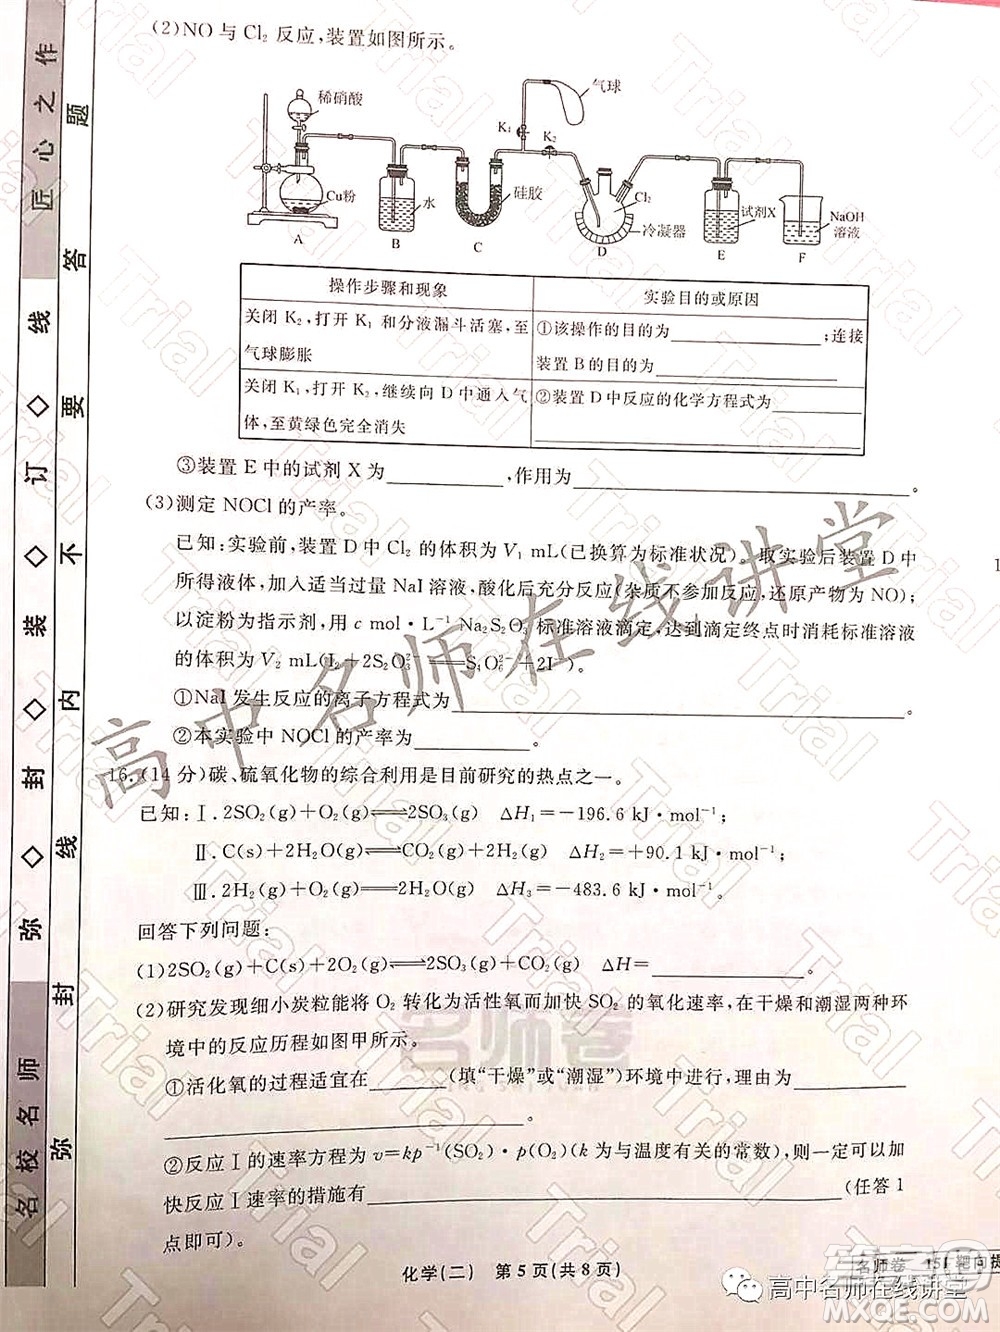 (2)NO 与 Cl₂ 反应,装置如图所示。
稀硝酸
Cu粉
A
水
B
硅胶
C
K₁
K₂
气球
Cl₂
冷凝器
D
试剂X
E
NaOH
溶液
F
操作步骤和现象
实验目的或原因
关闭 K₂,打开 K₁ 和分液漏斗活塞,至
气球膨胀
①该操作的目的为____;连接
装置 B 的目的为____
关闭 K₁,打开 K₂,继续向 D 中通入气
体,至黄绿色完全消失
②装置 D 中反应的化学方程式为____
③装置 E 中的试剂 X 为____,作用为____。
(3)测定 NOCl 的产率。
已知:实验前,装置 D 中 Cl₂ 的体积为 V₁ mL(已换算为标准状况)。取实验后装置 D 中
所得液体,加适当过量 NaI 溶液,酸化后充分反应(杂质不参加反应,还原产物为 NO);
以淀粉为指示剂,用 c mol·L⁻¹ Na₂S₂O₃ 标准溶液滴定,达到滴定终点时消耗标准溶液
的体积为 V₂ mL(I₂+2S₂O₃²⁻══S₄O₆²⁻+2I⁻)。
①NaI 发生反应的离子方程式为____。
②本实验中 NOCl 的产率为____。
16.(14 分)碳、硫氧化物的综合利用是目前研究的热点之一。
已知:Ⅰ.2SO₂(g)+O₂(g)⇌2SO₃(g) ΔH₁=-196.6 kJ·mol⁻¹;
Ⅱ.C(s)+2H₂O(g)⇌CO₂(g)+2H₂(g) ΔH₂=+90.1 kJ·mol⁻¹;
Ⅲ.2H₂(g)+O₂(g)⇌2H₂O(g) ΔH₃=-483.6 kJ·mol⁻¹。
回答下列问题:
(1)2SO₂(g)+C(s)+2O₂(g)⇌2SO₃(g)+CO₂(g) ΔH=____。
(2)研究发现细小炭粒能将 O₂ 转化为活性氧而加快 SO₂ 的氧化速率,在干燥和潮湿两种环
境中的反应历程如图甲所示。
①活化氧的过程适宜在____(填“干燥”或“潮湿”)环境中进行,理由为____
____。
②反应Ⅰ的速率方程为 v=kp⁻¹(SO₂)·p(O₂)(k 为与温度有关的常数),则一定可以加
快反应Ⅰ速率的措施有____(任答 1
点即可)。
化学(二) 第 5 页(共 8 页)
名师卷
靶向提
匠心之作
名校名师
弥◇封◇装◇订◇线
弥封线内不要答题
高中名师在线讲堂
名师卷
高中名师在线讲堂
MXQE.COM
Trial